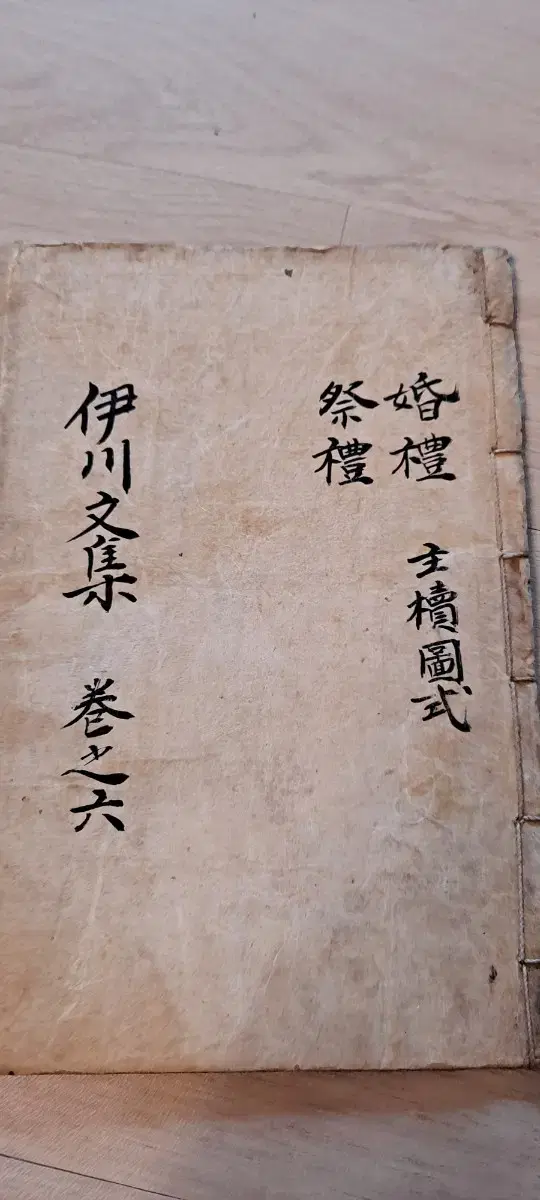 婚禮　主櫝圖式
祭禮
伊川文集　巻之六